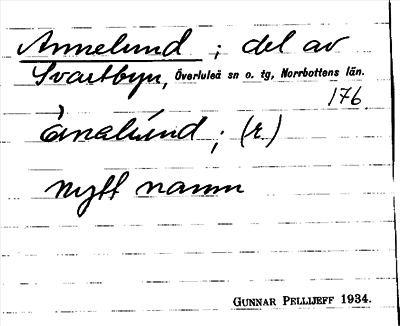 Annelund ; del av
Svartbyn, Överluleå sn o. tg, Norrbottens län.
176.
ànalúnd ; (r.)
nytt namn
GUNNAR PELLIJEFF 1934.